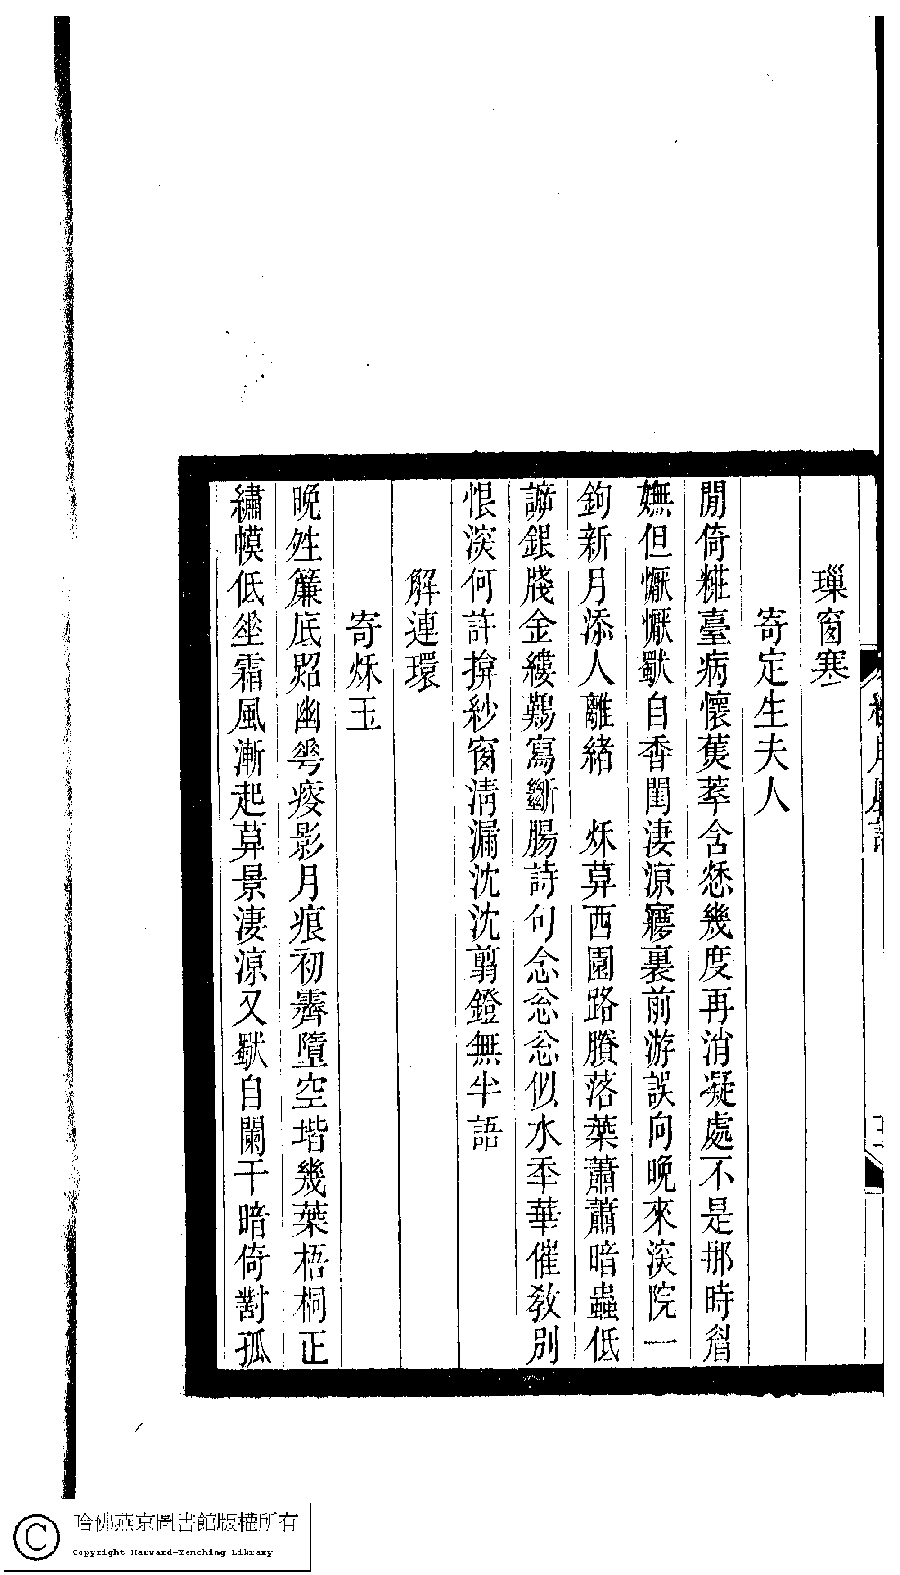 瑶窗寒
寄定生夫人
閒倚糚臺病懷蕉萃含愁幾度再消凝處不是那時眉
嫵但懨懨獣自香閨淒涼㝱裏前游誤向晚來湥院一
鉤新月添人離緒　秌萛西園路賸落葉蕭蕭暗蟲低
訴銀牋金縷難寫斷腸詩句念忩忩似水秊華催敎別
恨湥何許揜紗窗清漏沈沈翦鐙無半語
解連環
寄秌玉
晚甠簾底照幽芌痠影月痕初霽墮空堦幾葉梧桐正
繡幙低垂霜風漸起萛景淒涼又獣自闌干暗倚對孤
哈佛燕京圖書館版權所有
Copyright Harvard-Yenching Library